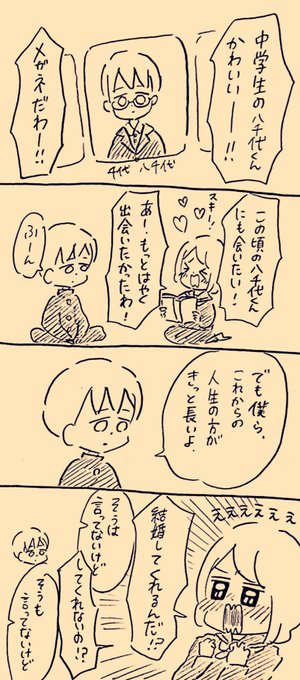 中学生の八千代くん
かわいいーーー!!
メガネだわー!!
千代 八千代
この頃の八千代くん
にも会いたい!
スキー!
あー もっとはやく
出会いたかったわ!
ふーん
でも僕ら、
これからの
人生の方が
きっと長いよ.
ええええええ
結婚してくれるんだ!?
そうは
言ってないけど
してくれないの!?
そうも
言ってないけど